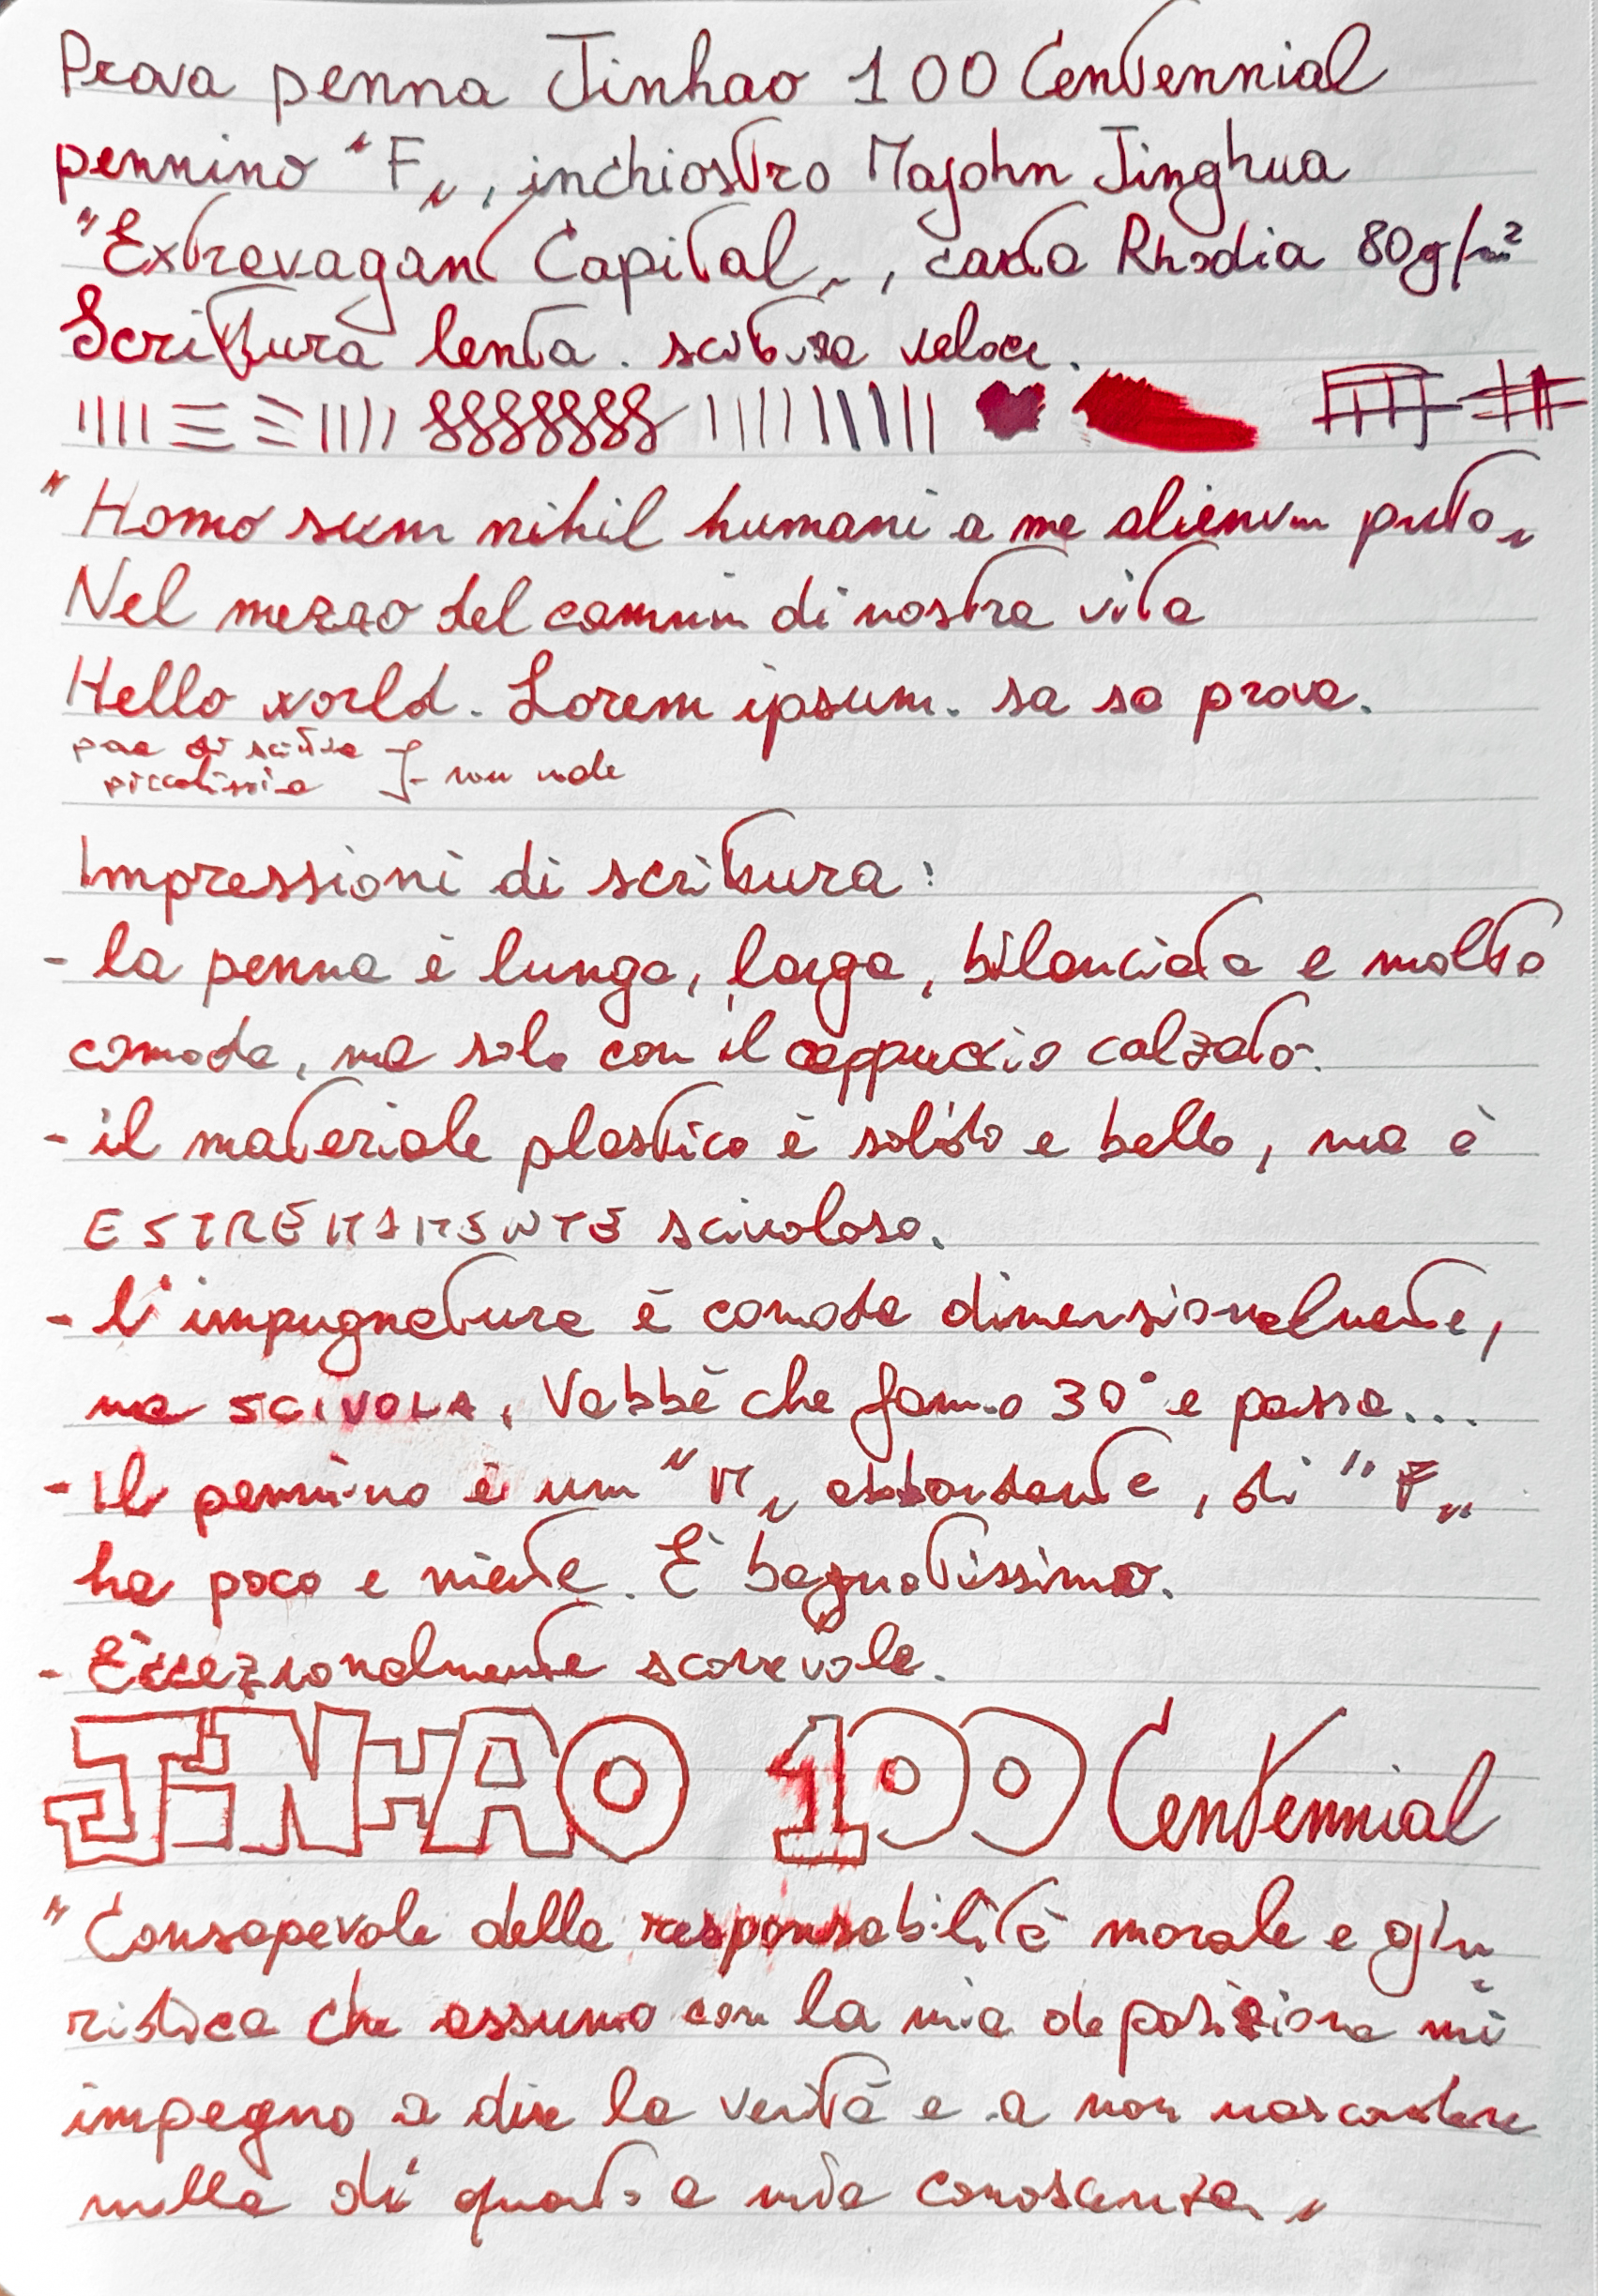 Prova penna Jinhao 100 Centennial
pennino "F", inchiostro Majohn Jinghua
"Extravagant Capital", carta Rhodia 80g/m²
Scrittura lenta. scrittura veloce.
"Homo sum nihil humani a me alienum puto"
Nel mezzo del cammin di nostra vita
Hello world. Lorem ipsum. sa sa prova.
di scrittura
piccolissima } non vale
Impressioni di scrittura:
- la penna è lunga, larga, bilanciata e molto
comoda, ma solo con il cappuccio calzato.
- il materiale plastico è solido e bello, ma è
ESTREMAMENTE scivoloso.
- l'impugnatura è comoda dimensionalmente,
ma SCIVOLA. Vabbè che fanno 30° e passa...
- Il pennino è un "M" abbondante, di "F"
ha poco e niente. È bagnatissimo.
- Eccezionalmente scorrevole.
JINHAO 100 Centennial
"Consapevole della responsabilità morale e giu
ridica che assumo con la mia deposizione mi
impegno a dire la verità e a non nascondere
nulla di quanto a mia conoscenza"